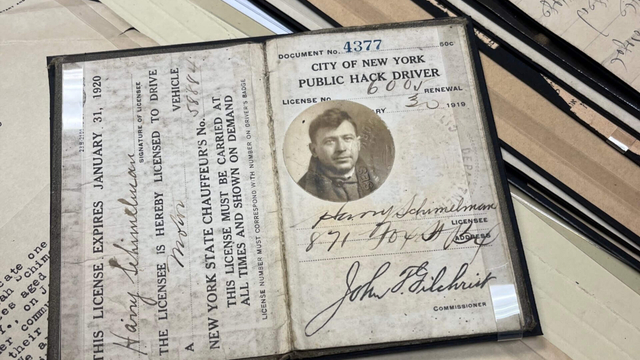 THIS LICENSE EXPIRES JANUARY 31, 1920
Harry Schimelman
SIGNATURE OF LICENSEE
THE LICENSEE IS HEREBY LICENSED TO DRIVE
A Motor VEHICLE
NEW YORK STATE CHAUFFEUR'S No.
THIS LICENSE MUST BE CARRIED AT
ALL TIMES AND SHOWN ON DEMAND
LICENSE NUMBER MUST CORRESPOND WITH NUMBER ON DRIVER'S BADGE
DOCUMENT NO. 4377 50C
CITY OF NEW YORK
PUBLIC HACK DRIVER
LICENSE NO. RENEWAL
1919
Harry Schimelman
LICENSEE
871
ADDRESS
John F. Gilchrist
COMMISSIONER